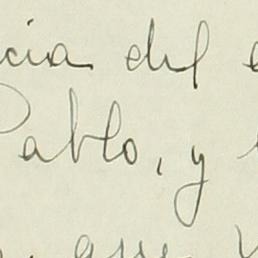 cia del
Pablo, y